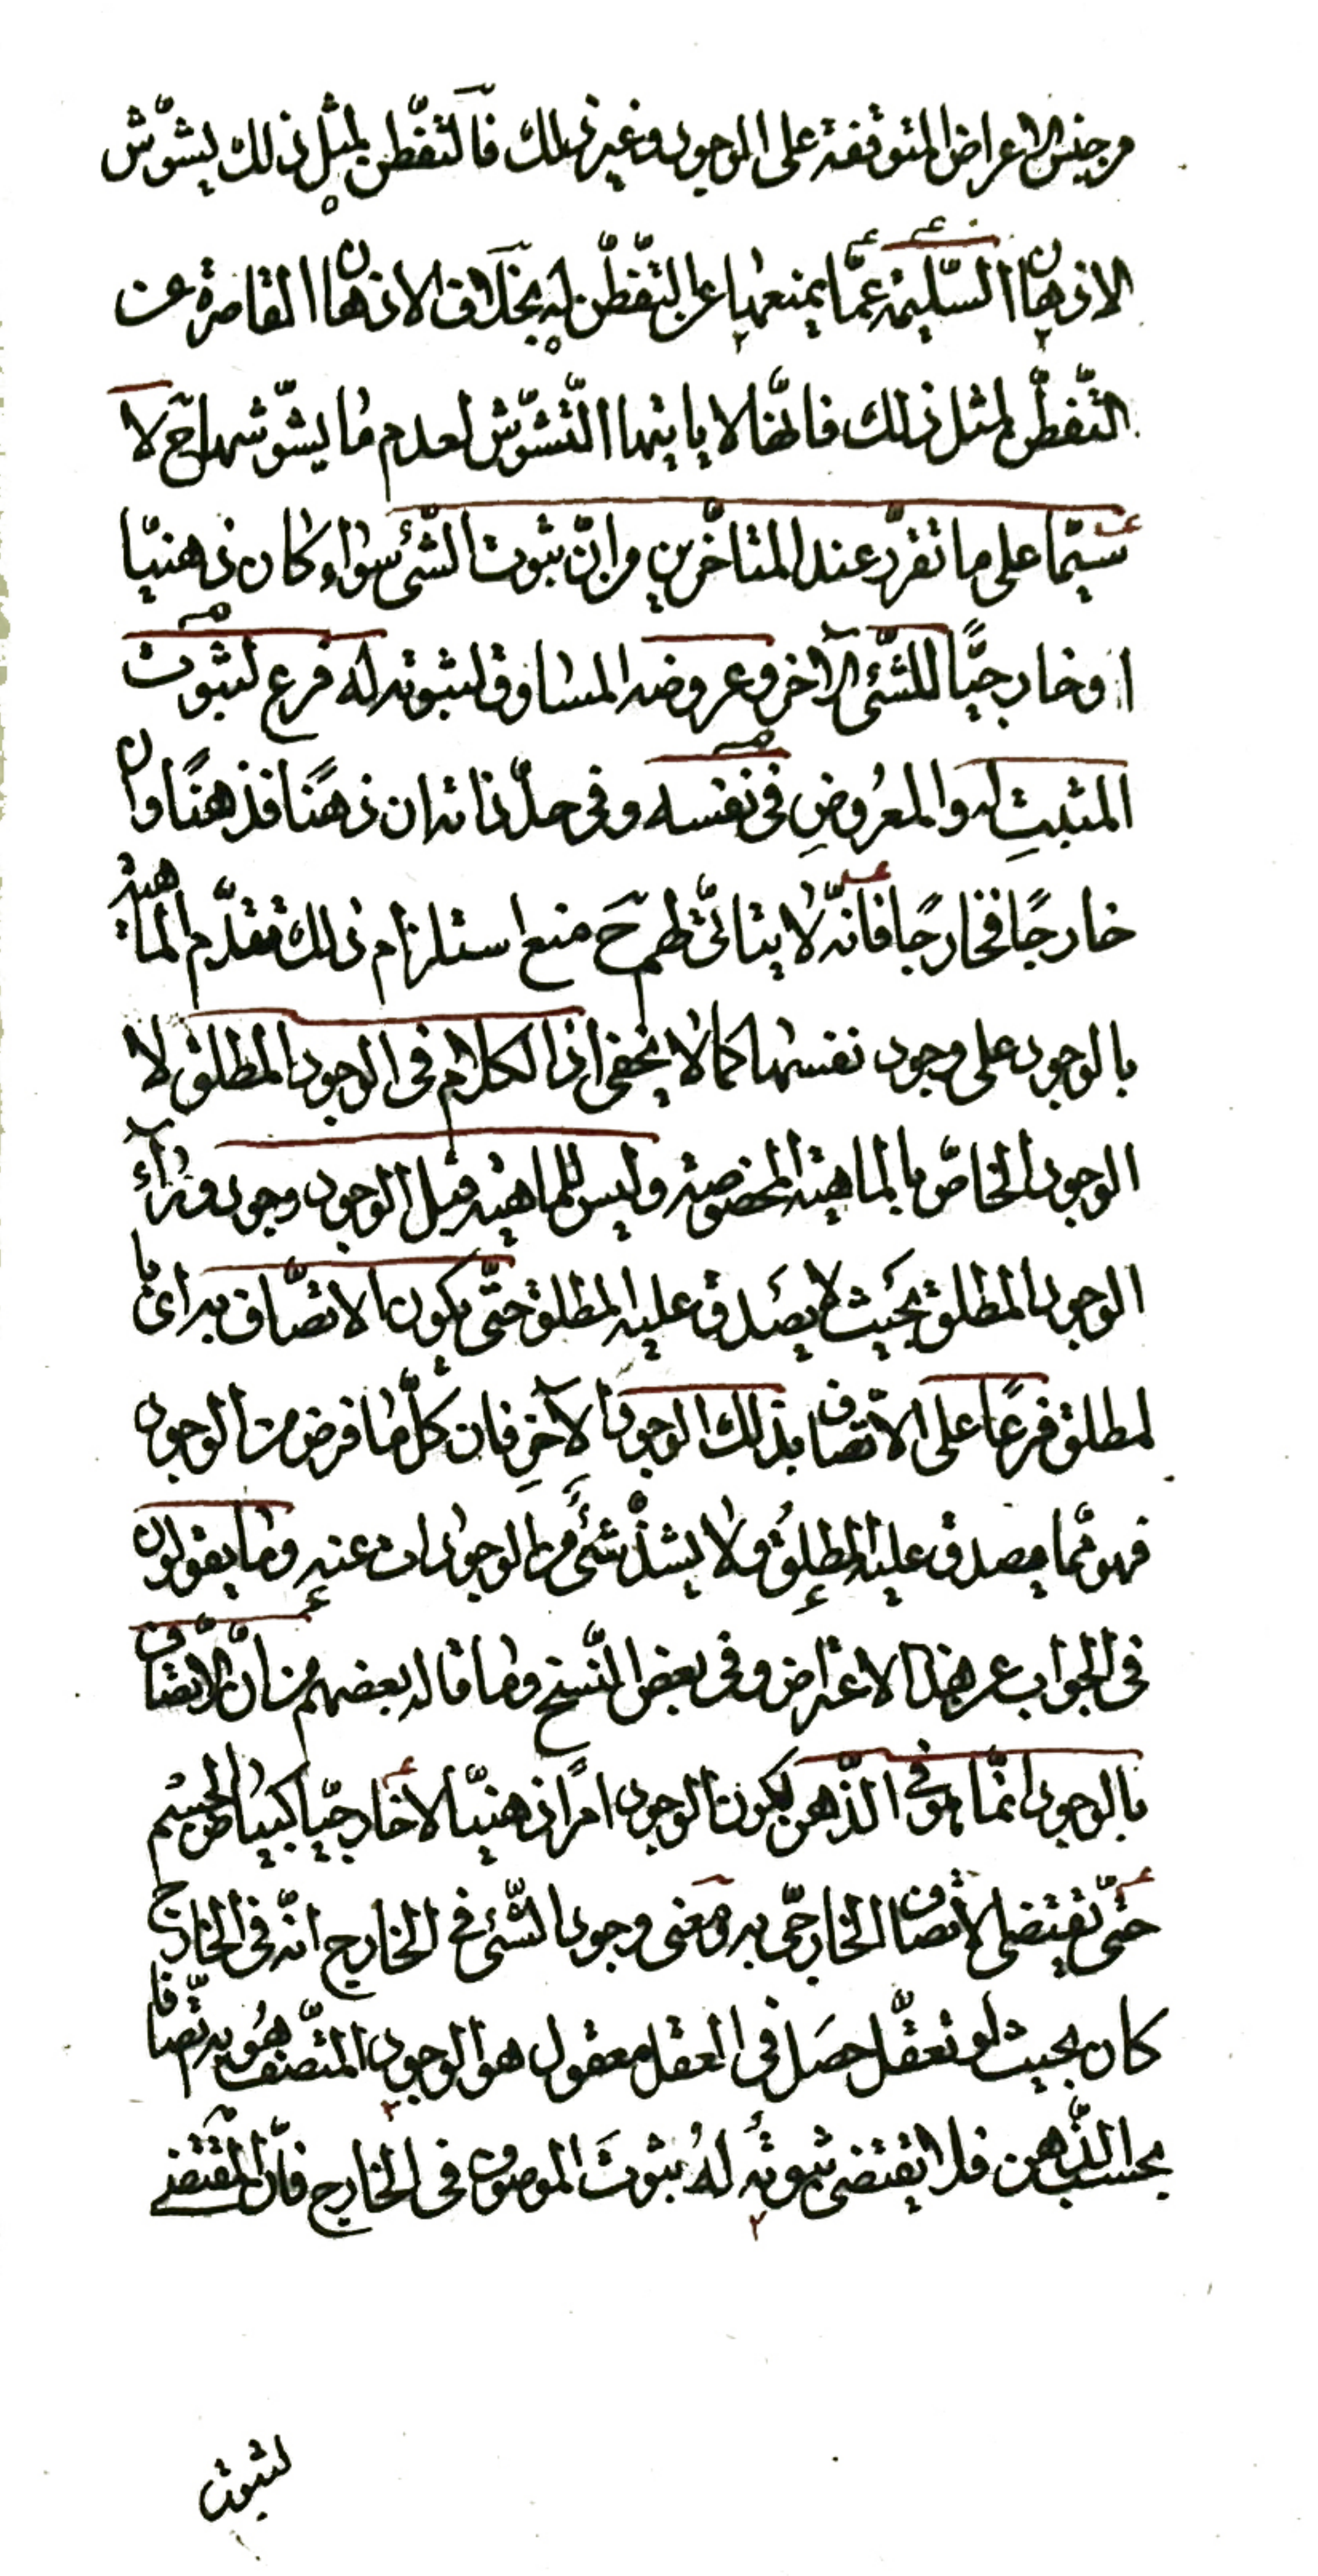 من جنس الاعراض المتوقفة على الوجود وغير ذلك فالتفطن لمثل ذلك يشوّش
الاذهان السّليمة عمّا يمنعها عن التفطّن له بخلاف الاذهان القاصرة عن
التّفطّن لمثل ذلك فانّها لا ياتيها التّشوّش لعدم ما يشوّشها ح لا
سيّما على ما تقرّر عند المتاخّرين من انّ ثبوت الشّئ سواء كان ذهنيّا
او خارجيًّا للشّئ الآخر وعروضه المساوق لثبوته له فرع لثبوت
المثبتِ له والمعرُوضِ في نفسه وفي حدّ ذاته ان ذهنًا فذهنًا وان
خارجًا فخارجًا فانّه لا يتاتّى لهم حَ منع استلزام ذلك تقدّم الماهية
بالوجود على وجود نفسها كما لا يخفى اذ الكلام في الوجود المطلق لا
الوجود الخاصّ بالماهية المخصوصة وليس للماهية قبل الوجود وجود وراء
الوجود المطلق بحَيث لا يصَدق عليه المطلق حتّى يكون الاتّصاف به اى با
لمطلق فرعًا على الاتّصاف بذلك الوجود الآخرِ فان كلّ ما فرض من الوجود
فهو ممّا يصدق عليه المطلق ولا يشذّ شئ من الوجودات عنه وما يقولون
في الجواب عن هذا الاعتراض وفي بعض النّسخ وما قاله بعضهم من انّ الاتّصاف
بالوجود انّما هو في الذّهن لكون الوجود امرًا ذهنيّا لا خارجيّا كبياض الجسْم
حتّى تقتضى الاتّصاف الخارجىّ به ومعنى وجود الشّئ في الخارج انّه في الخارج
كان بحيث لو تعقّل حصَل في العقل معقول هو الوجود المتّصف هُو به اتّصافا
بحسب الذّهن فلا يقتضى ثبوتُه لهُ ثبوتَ الموصوف في الخارج فانّ المقتضى
لثبوت